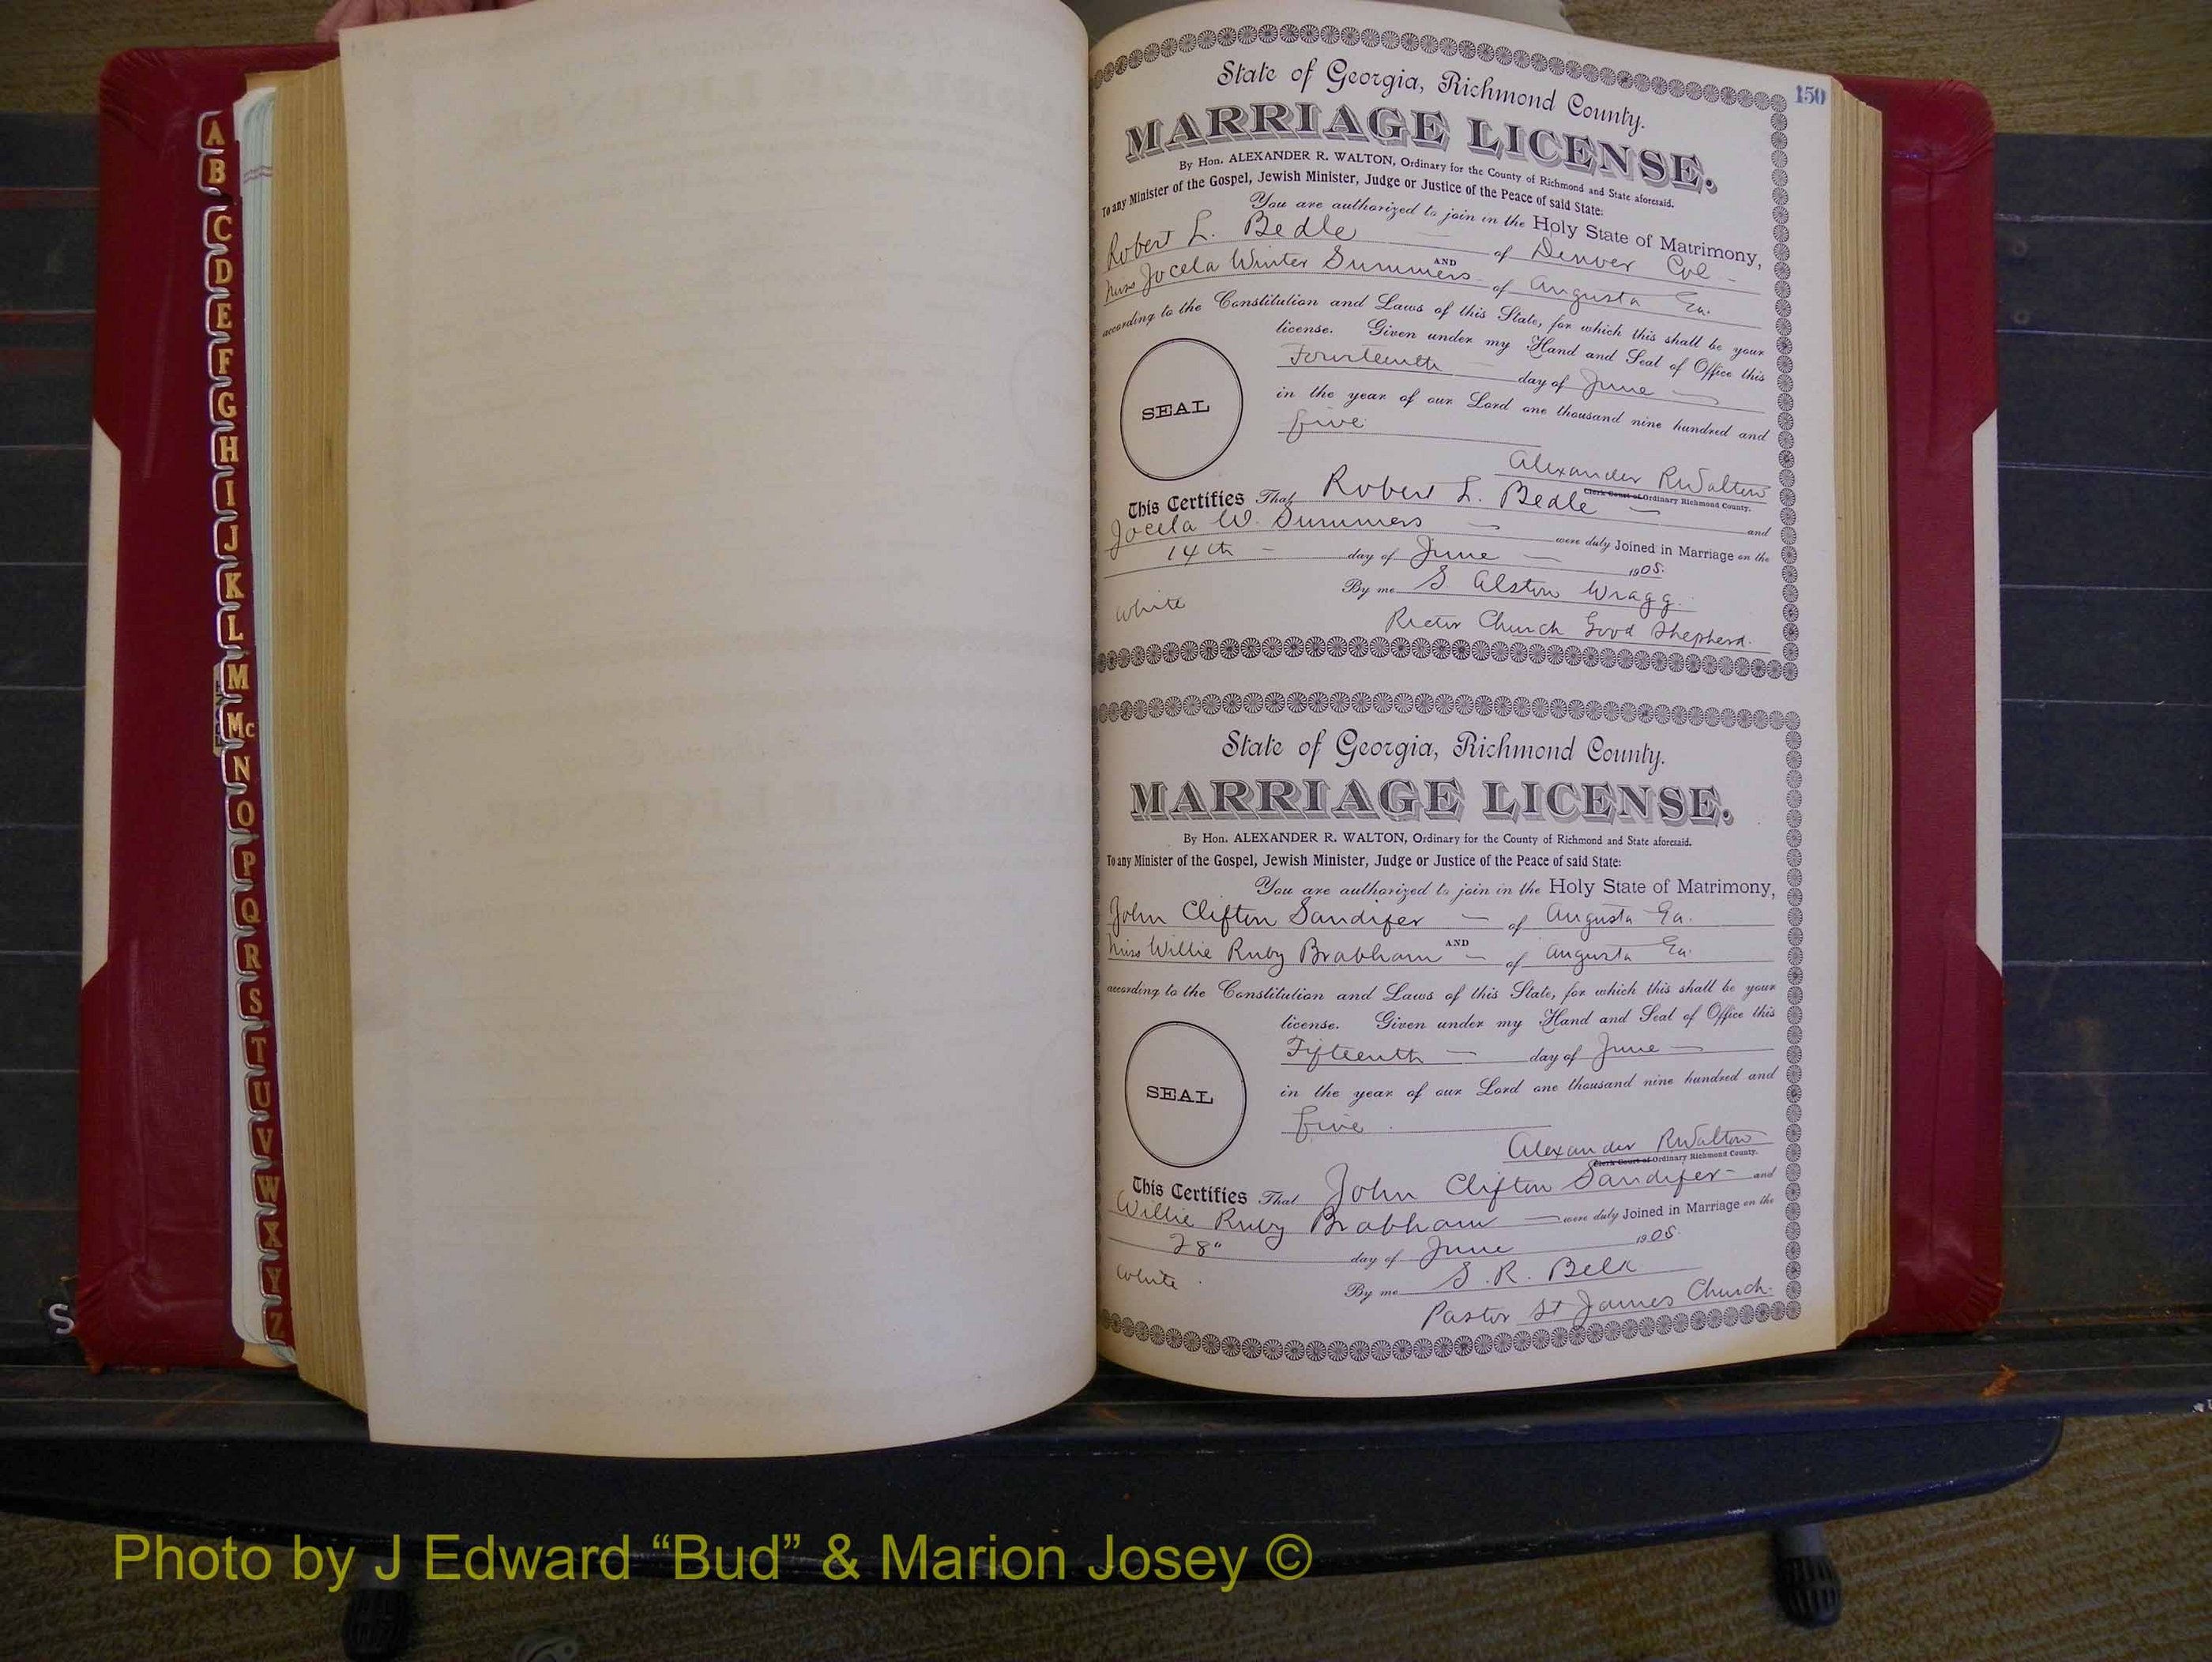 A
B
C
D
E
F
G
H
I
J
K
L
M
Mc
N
O
P
Q
R
S
T
U
V
W
X
Y
Z
S
150
State of Georgia, Richmond County.
MARRIAGE LICENSE.
By Hon. ALEXANDER R. WALTON, Ordinary for the County of Richmond and State aforesaid.
To any Minister of the Gospel, Jewish Minister, Judge or Justice of the Peace of said State:
You are authorized to join in the Holy State of Matrimony,
Robert L. Bedle of Denver Col
AND
Miss Jocela Winter Summers of Augusta Ga.
according to the Constitution and Laws of this State, for which this shall be your
license. Given under my Hand and Seal of Office this
Fourteenth day of June
in the year of our Lord one thousand nine hundred and
SEAL
five
Alexander R Walton
Clerk Court of Ordinary Richmond County.
This Certifies That Robert L. Bedle and
Jocela W. Summers were duly Joined in Marriage on the
14th day of June 1905.
By me S Alston Wragg.
White
Rector Church Good Shepherd.
State of Georgia, Richmond County.
MARRIAGE LICENSE.
By Hon. ALEXANDER R. WALTON, Ordinary for the County of Richmond and State aforesaid.
To any Minister of the Gospel, Jewish Minister, Judge or Justice of the Peace of said State:
You are authorized to join in the Holy State of Matrimony,
John Clifton Sandifer of Augusta Ga.
AND
Miss Willie Ruby Brabham of Augusta Ga.
according to the Constitution and Laws of this State, for which this shall be your
license. Given under my Hand and Seal of Office this
Fifteenth day of June
in the year of our Lord one thousand nine hundred and
SEAL
five.
Alexander R Walton
Clerk Court of Ordinary Richmond County.
This Certifies That John Clifton Sandifer and
Willie Ruby Brabham were duly Joined in Marriage on the
28" day of June 1905.
White.
By me S. R. Belk
Pastor St James Church.
Photo by J Edward “Bud” & Marion Josey ©